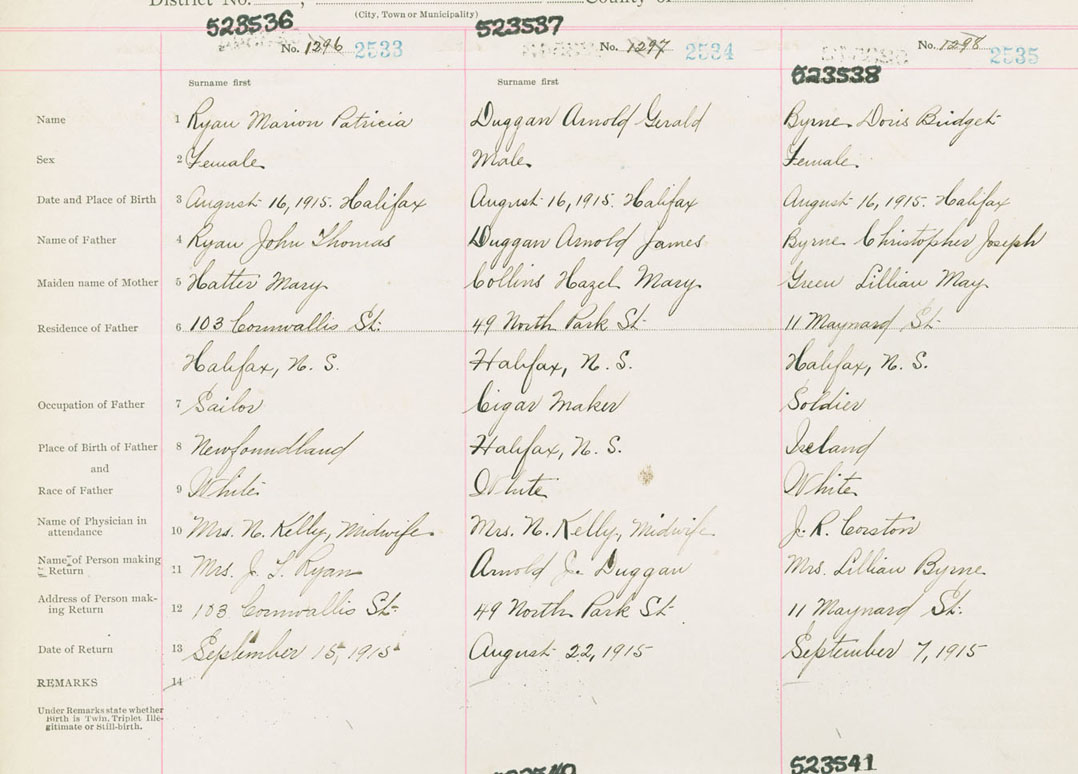 District No. , County of
(City, Town or Municipality)
523536 523537
No. 1296 2533 No. 1297 2534 No. 1298 2535
523538
Surname first Surname first
Name 1 Ryan Marion Patricia Duggan Arnold Gerald Byrne Doris Bridget
Sex 2 Female Male Female
Date and Place of Birth 3 August 16, 1915. Halifax August 16, 1915. Halifax August 16, 1915. Halifax
Name of Father 4 Ryan John Thomas Duggan Arnold James Byrne Christopher Joseph
Maiden name of Mother 5 Hatter Mary Collins Hazel Mary Green Lillian May
Residence of Father 6 103 Cornwallis St. 49 North Park St. 11 Maynard St.
Halifax, N. S. Halifax, N. S. Halifax, N. S.
Occupation of Father 7 Sailor Cigar Maker Soldier
Place of Birth of Father 8 Newfoundland Halifax, N. S. Ireland
and
Race of Father 9 White White White
Name of Physician in
attendance 10 Mrs. N. Kelly, Midwife Mrs. N. Kelly, Midwife J. R. Corston
Name of Person making
Return 11 Mrs. J. T. Ryan Arnold J. Duggan Mrs. Lillian Byrne
Address of Person mak-
ing Return 12 103 Cornwallis St. 49 North Park St. 11 Maynard St.
Date of Return 13 September 15, 1915 August 22, 1915 September 7, 1915
REMARKS 14
Under Remarks state whether
Birth is Twin, Triplet Ille-
gitimate or Still-birth.
523541